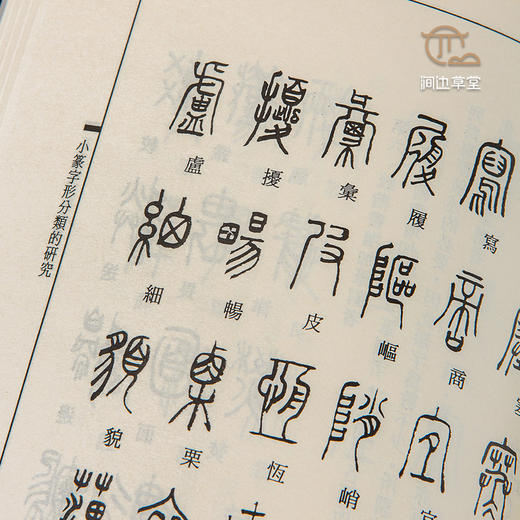 涧边草堂
小篆字形分類的研究
盧 擾 彙 履 寫
細 暢 皮 嶇 商
貌 栗 恆 峭